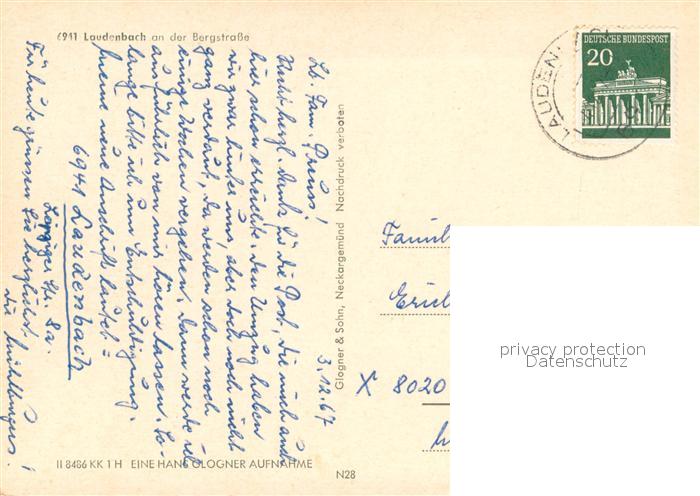 6941 Laudenbach an der Bergstraße
DEUTSCHE BUNDESPOST
20
LAUDEN
3.12.67
Lb. Fam. Preuss!
Recht herzl. Dank für die Post, die mich auch
hier schon erreichte. Den Umzug haben
wir zwar hinter uns, aber doch noch nicht
ganz verdaut, da werden schon noch
einige Wochen vergehen. Dann werde ich
ausführlich von mir hören lassen. So-
lange bitte ich um Entschuldigung.
Meine neue Anschrift lautet:
6941 Laudenbach
Str. 8a.
Für heute grüssen Sie herzlichst
die
Glogner & Sohn, Neckargemünd Nachdruck verboten
Famil
Erich
X 8020
privacy protection
Datenschutz
II 8486 KK 1 H EINE HANS GLOGNER AUFNAHME
N28